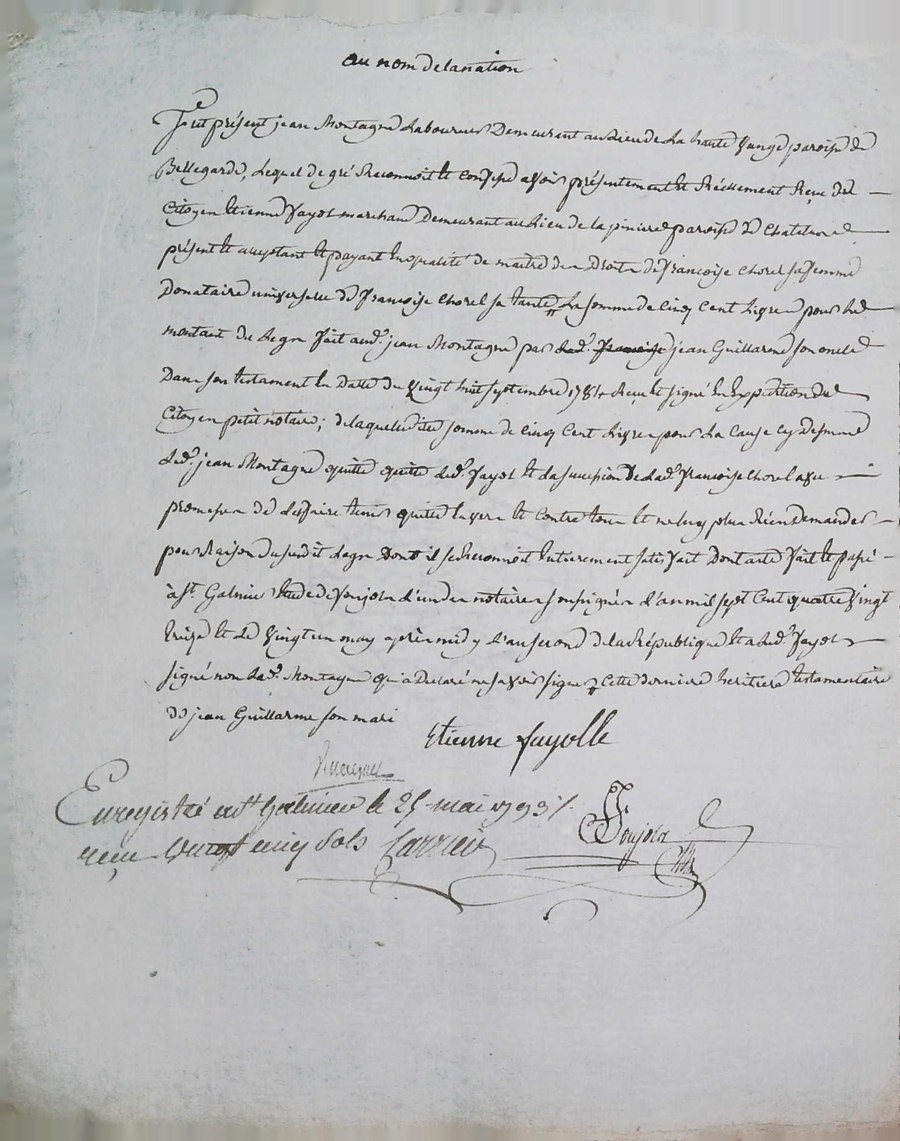 au nom de la nation
Fut présent jean Montagne Laboureur Demeurant au Lieu de La haute paroisse de
Bellegarde, Lequel de gré Reconnoit et confesse avoir présentement et Réellement Reçu du
Citoyen Etienne Fayol marchand Demeurant au Lieu de la paroisse de Chatelus
présent et acceptant et payant En qualité de maitre des Droits de françoise chorel sa femme
Donataire universelle de françoise chorel sa tante, La somme de Cinq Cent Livres pour le
montant du Legs fait aud. jean Montagne par jean Guillarme son oncle
Dans son testament En Datte du vingt huit septembre 1784 Reçu et signé En Expedition du
Citoyen petit notaire; de laquelle dite somme de Cinq Cent Livres pour La Cause cy Dessus
Led. jean Montagne quitte quitte led. fayol et la succession De lad. francoise chorel avec
promesse de Les faire tenir quitte Envers et Contre tous et ne luy plus Rien Demander
pour Raison Du susdit Legs Dont il se Reconnoit Entierement satisfait Dont acte fait et passé
à St. Galmier Etude de Fonjoin L'un des notaires soussignés L'an mil sept Cent quatre vingt
treize et Le vingt un may après midy L'an second de la République Et a led. Fayol
signé non led. Montagne qui a Déclaré ne savoir signer, Cette derniere heritiere testamentaire
de jean Guillarme son mari
Etienne fayolle
Enregistré à St Galmier le 25 mai 1793
reçu cinq sols Carrier
Fonjoin